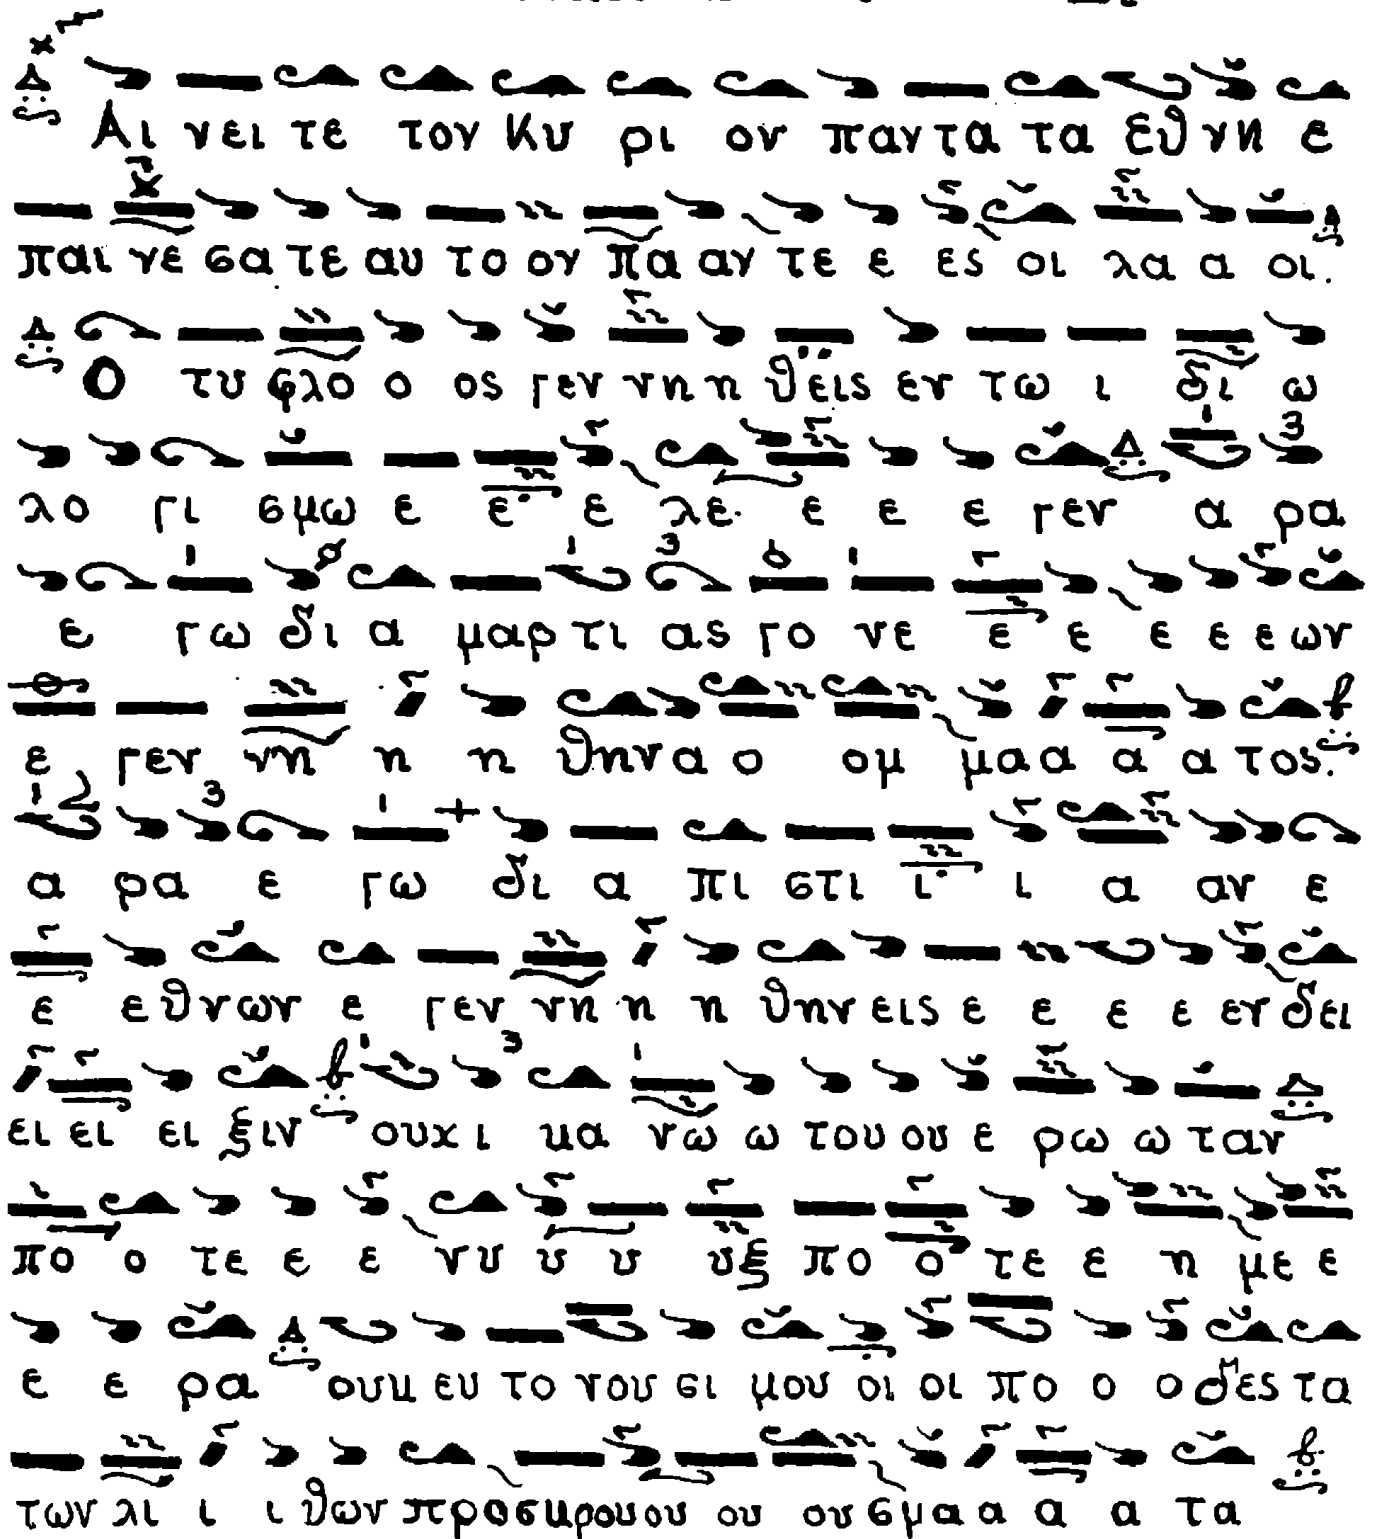 Αι νει τε τον Κυ ρι ον παντα τα εθ νη ε
παι νε σα τε αυ το ον πα αν τε ε ες οι λα α οι.
Ο τυ φλο ο ος γεν νη η θεις εν τω ι δι ω
λο γι σμω ε ε ε λε ε ε ε γεν α ρα
ε γω δι α μαρ τι ας γο νε ε ε ε ε ε ων
ε γεν νη η η θην α ο ομ μα α α α τος.
α ρα ε γω δι α πι στι ι ι α αν ε
ε ε θνων ε γεν νη η η θην εις ε ε ε ε εν δει
ει ει ει ξιν ουχ ι κα νω ω του ου ε ρω ω ταν
πο ο τε ε ε νυ υ υ υξ πο ο τε ε η με ε
ε ε ρα ουκ ευ το νου σι μου οι οι πο ο ο δες τα
των λι ι ι θων προσκρου ου ου ου σμα α α α τα